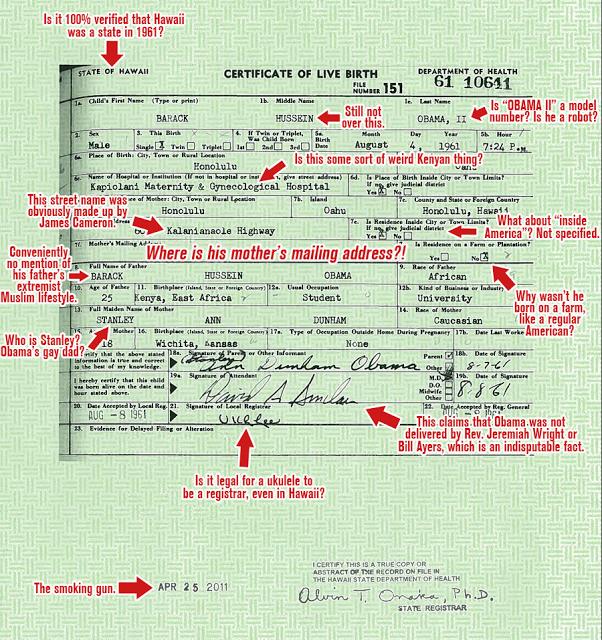 Is it 100% verified that Hawaii
was a state in 1961?
STATE OF HAWAII
CERTIFICATE OF LIVE BIRTH
DEPARTMENT OF HEALTH
FILE
NUMBER 151
61 10641
1a. Child's First Name (Type or print)
1b. Middle Name
1c. Last Name
BARACK
HUSSEIN
OBAMA, II
Still not
over this.
Is "OBAMA II" a model
number? Is he a robot?
2. Sex
3. This Birth
4. If Twin or Triplet,
Was Child Born
5a. Birth Date
Month
Day
Year
5b. Hour
Male
Single X Twin Triplet
1st 2nd 3rd
August 4, 1961
7:24 P.M.
6a. Place of Birth: City, Town or Rural Location
Honolulu
Is this some sort of weird Kenyan thing?
6c. Name of Hospital or Institution (If not in hospital or institution, give street address)
6d. Is Place of Birth Inside City or Town Limits?
If no, give judicial district
Kapiolani Maternity & Gynecological Hospital
Yes X No
City, Town or Rural Location
7b. Island
7c. County and State or Foreign Country
Honolulu
Oahu
Honolulu, Hawaii
This street name was
obviously made up by
James Cameron.
Kalanianaole Highway
7e. Is Residence Inside City or Town Limits?
If no, give judicial district
Yes X No
What about "inside
America"? Not specified.
7f. Mother's Mailing Address
Where is his mother's mailing address?!
Is Residence on a Farm or Plantation?
Yes No X
Conveniently
no mention of
his father's
extremist
Muslim lifestyle.
8. Full Name of Father
9. Race of Father
BARACK
HUSSEIN
OBAMA
African
10. Age of Father
11. Birthplace (Island, State or Foreign Country)
12a. Usual Occupation
12b. Kind of Business or Industry
25
Kenya, East Africa
Student
University
Why wasn't he
born on a farm,
like a regular
American?
13. Full Maiden Name of Mother
14. Race of Mother
STANLEY
ANN
DUNHAM
Caucasian
Who is Stanley?
Obama's gay dad?
15. Age of Mother
16. Birthplace (Island, State or Foreign Country)
17a. Type of Occupation Outside Home During Pregnancy
17b. Date Last Worked
18
Wichita, Kansas
None
I certify that the above stated
information is true and correct
to the best of my knowledge.
18a. Signature of Parent or Other Informant
Parent
Other
18b. Date of Signature
(Stanley) Ann Dunham Obama
8-7-61
I hereby certify that this child
was born alive on the date and
hour stated above.
19a. Signature of Attendant
M.D.
D.O.
Midwife
Other
19b. Date of Signature
David A Sinclair
8-8-61
20. Date Accepted by Local Reg.
21. Signature of Local Registrar
22. Date Accepted by Reg. General
AUG -8 1961
U K L Lee
AUG -8 1961
23. Evidence for Delayed Filing or Alteration
This claims that Obama was not
delivered by Rev. Jeremiah Wright or
Bill Ayers, which is an indisputable fact.
Is it legal for a ukulele to
be a registrar, even in Hawaii?
The smoking gun.
APR 25 2011
I CERTIFY THIS IS A TRUE COPY OR
ABSTRACT OF THE RECORD ON FILE IN
THE HAWAII STATE DEPARTMENT OF HEALTH
Alvin T. Onaka, Ph.D.
STATE REGISTRAR